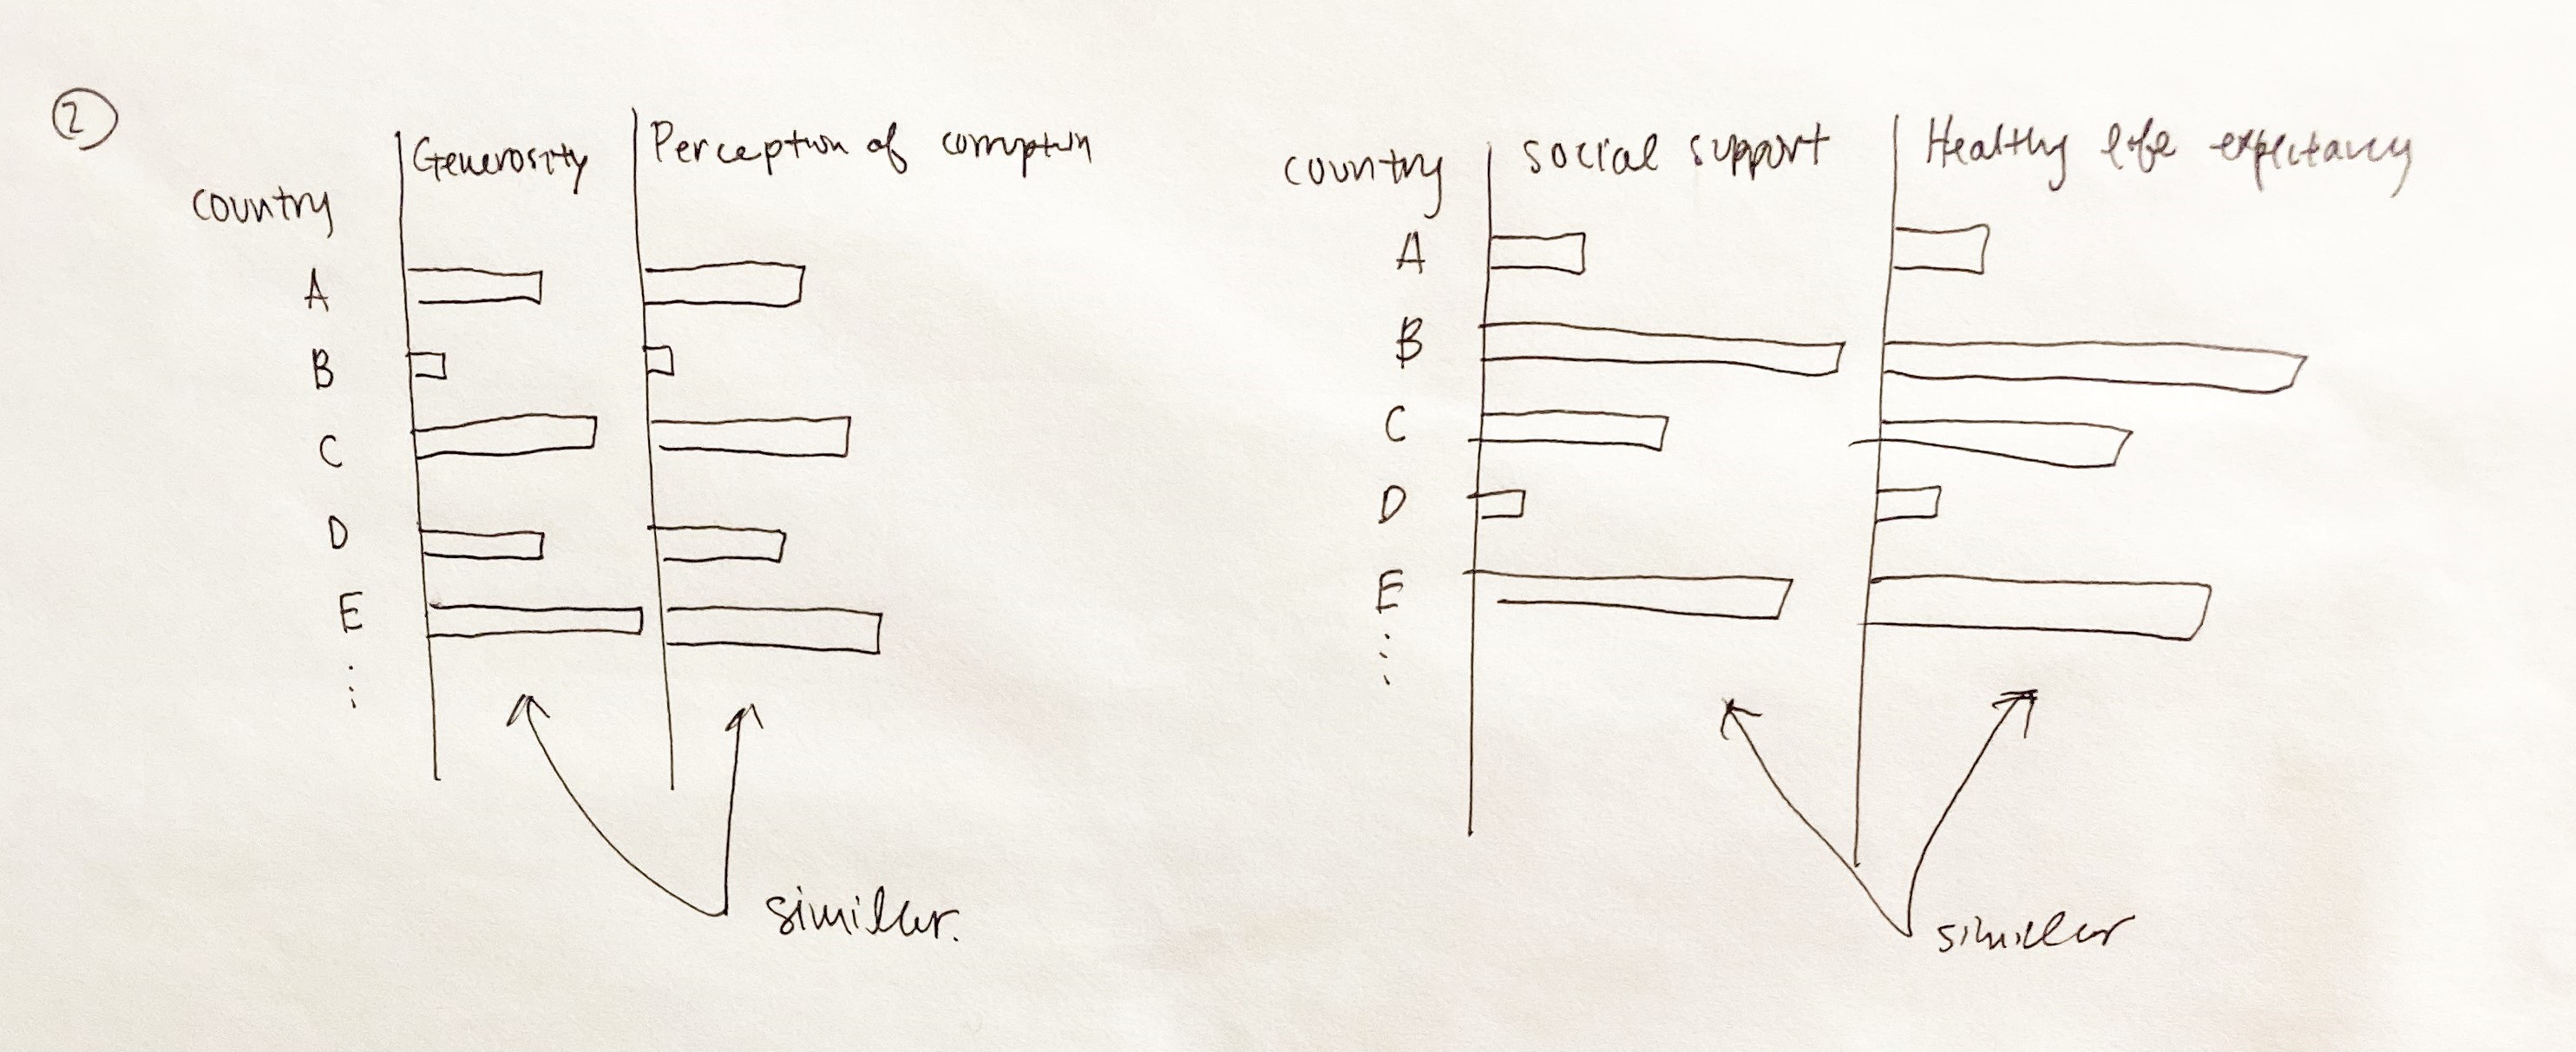 2
Generosity
Perception of corruption
country
A
B
C
D
E
similar.
country
social support
Healthy life expectancy
A
B
C
D
E
similar